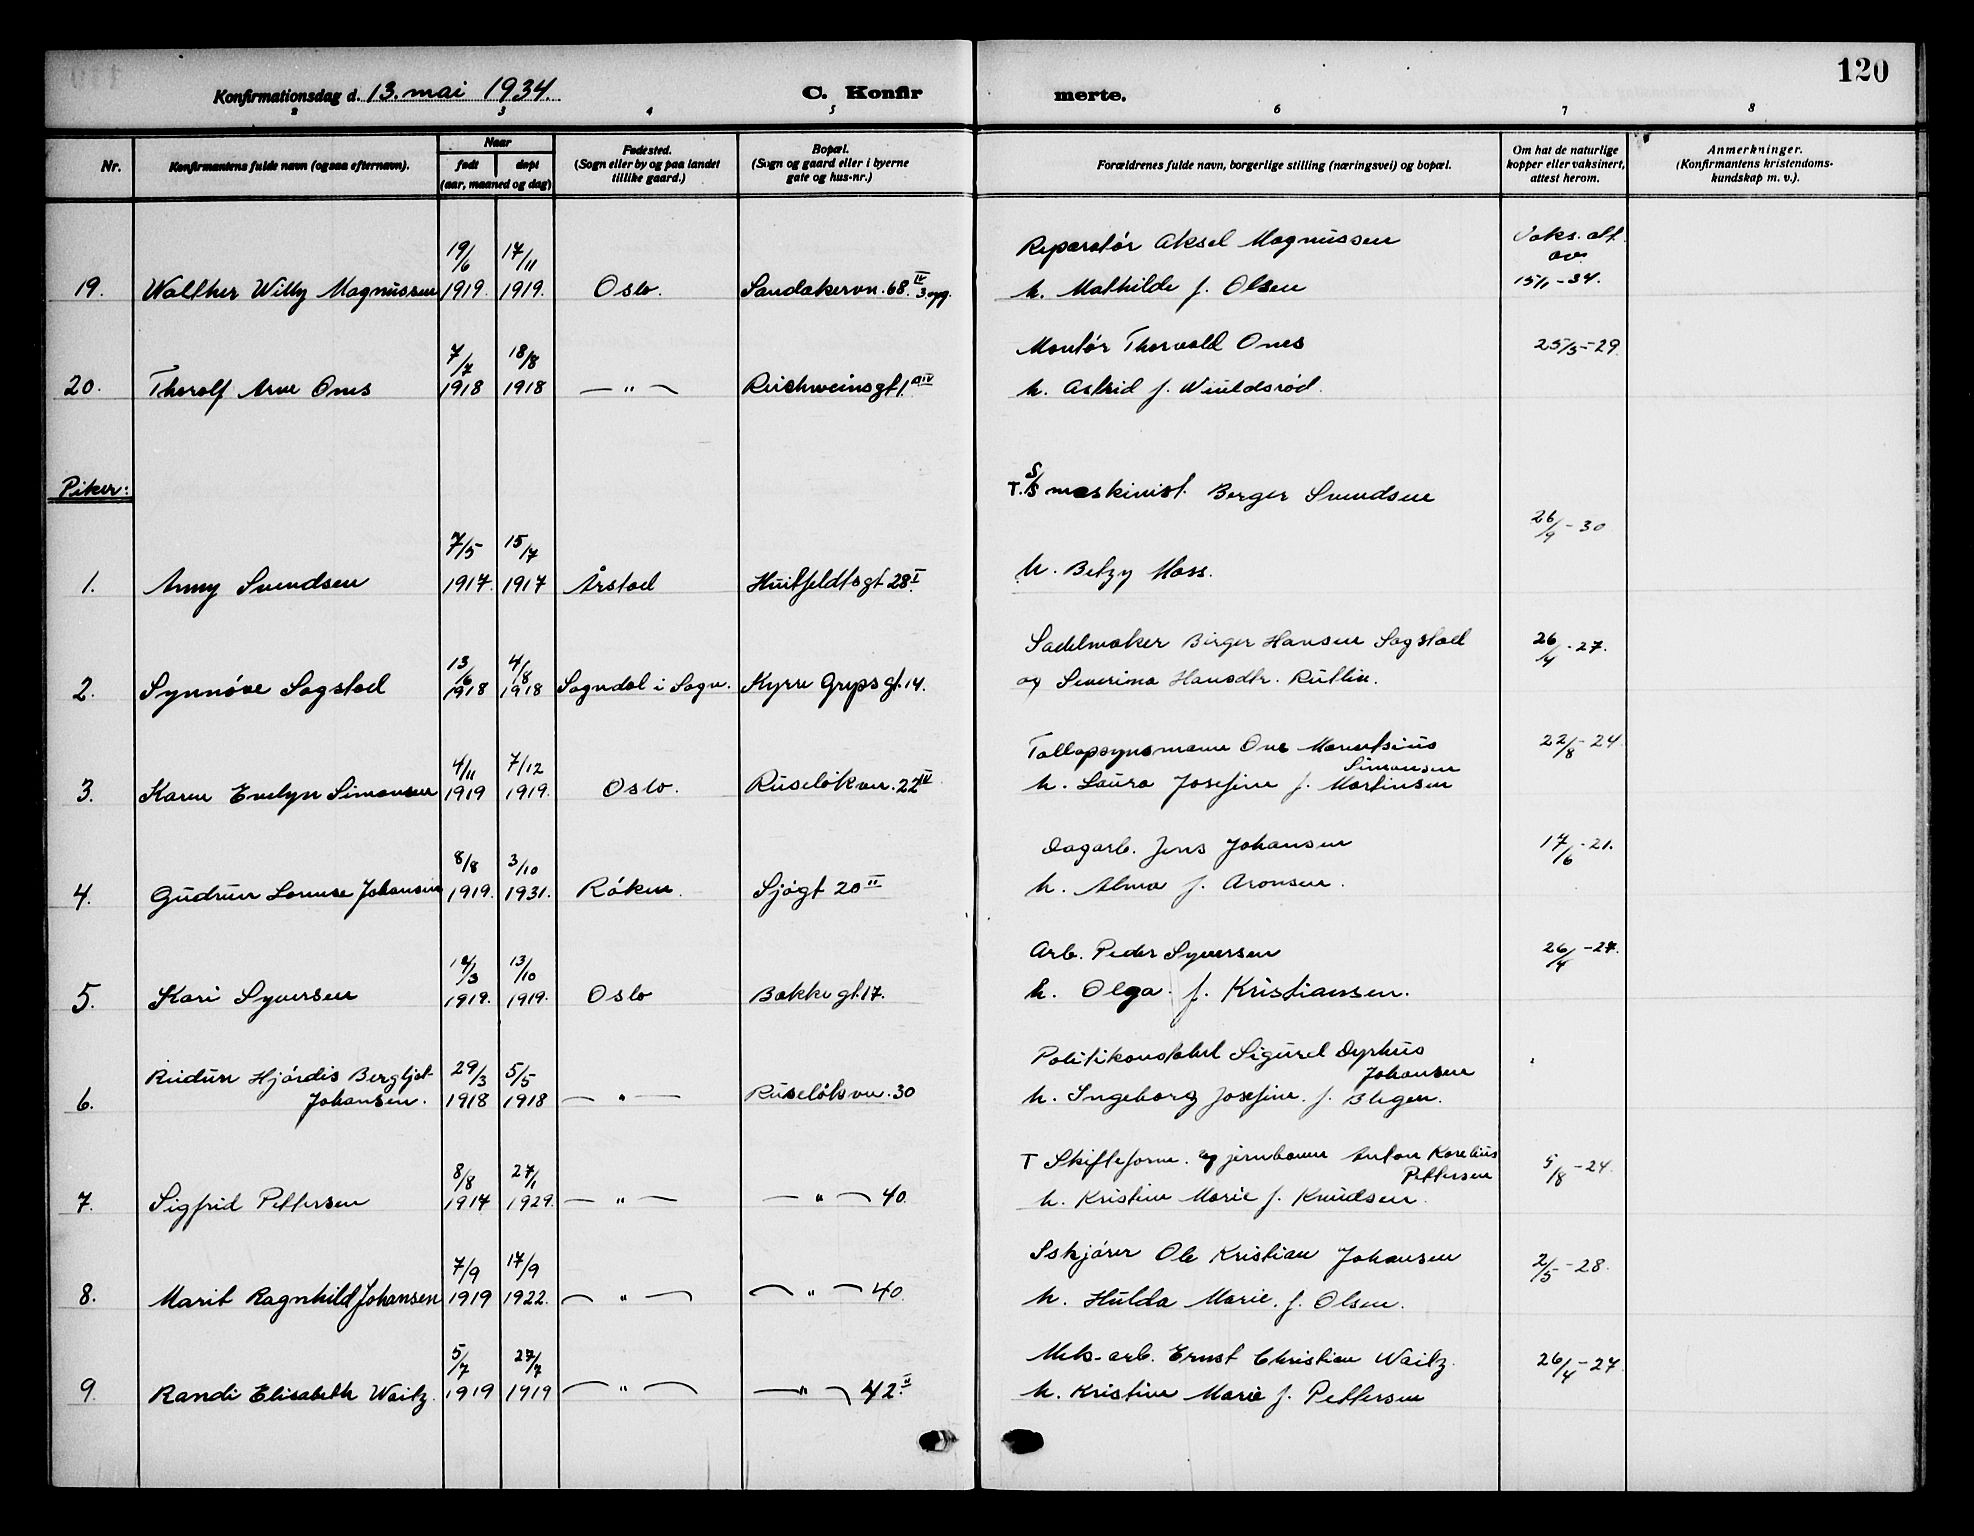 120
Konfirmationsdag d. 13. mai 1934.
C. Konfirmerte.
2 3 4 5 6 7 8
Nr.
Konfirmantens fulde navn (ogsaa efternavn).
Naar
født
døpt
(aar, maaned og dag)
Fødested.
(Sogn eller by og paa landet
tillike gaard.)
Bopæl.
(Sogn og gaard eller i byerne
gate og hus-nr.)
Forældrenes fulde navn, borgerlige stilling (næringsvei) og bopæl.
Om hat de naturlige
kopper eller vaksinert,
attest herom.
Anmerkninger.
(Konfirmantens kristendoms-
kundskap m. v.).
19/6 17/11 Reparatør Aksel Magnussen Vaks. att. av
19. Walther Willy Magnussen 1919. 1919. Oslo. Sandakervn. 68. IV 3. opg. h. Mathilde f. Olsen 15/1-34.
7/7 18/8 Montør Thorvald Ones 25/5-29.
20. Thorolf Arve Ones 1918 1918 — " — h. Astrid f.
Piker:
T. S/S maskinist Berger Svendsen
7/5 15/7 26/9-30
1. Anny Svendsen 1917. 1917 Årstad Huitfeldtsgt 28 I h. Betzy Moss.
13/6 4/8 Sadelmaker Birger Hansen Sogstad 26/4-27.
2. Synnøve Sogstad 1918 1918 Sogndal i Sogn. Kyrre Grepsgt. 14. og Severina Hansdtr. Rutlin.
4/11 7/12 Tollopsynsmann One Simonsen 22/8-24
3. Karen Evelyn Simonsen 1919 1919. Oslo. Ruseløkvn. 22 IV h. Laura Josefine f. Martinsen
8/8 3/10 Dagarb. Jens Johansen 17/6-21.
4. Gudrun Johansen 1919. 1931. Røken. Sjøgt 20 II h. Alma f. Aronsen.
13/10 Arb. Peder Syversen 26/4-27.
5. Kari Syversen 1919. 1919. Oslo Bakkegt. 17. h. Olga f. Kristiansen.
Hjørdis Bergljot 29/3 5/5 Politikonstabel Sigurd Dyrhus Johansen
6. Johansen. 1918 1918 — " — Ruseløkvn. 30 h. Ingeborg Josefine f.
8/8 27/1 T Skifteform. og jernbanem Anton Kornelius Pettersen 5/8-24.
7. Sigfrid Pettersen 1917 1929. — " — — " — 40. h. Kristine Marie f. Knudsen.
7/9 17/9 Iskjører Ole Kristian Johansen 2/5-28.
8. Marit Ragnhild Johansen 1919 1922. — " — — " — 40. h. Hulda Marie f. Olsen.
5/7 27/7 Mek-arb. Ernst Christian Waitz. 26/4-27.
9. Randi Elisabeth Waitz. 1919 1919 — " — — " — 42. II h. Kristine Marie f. Pettersen